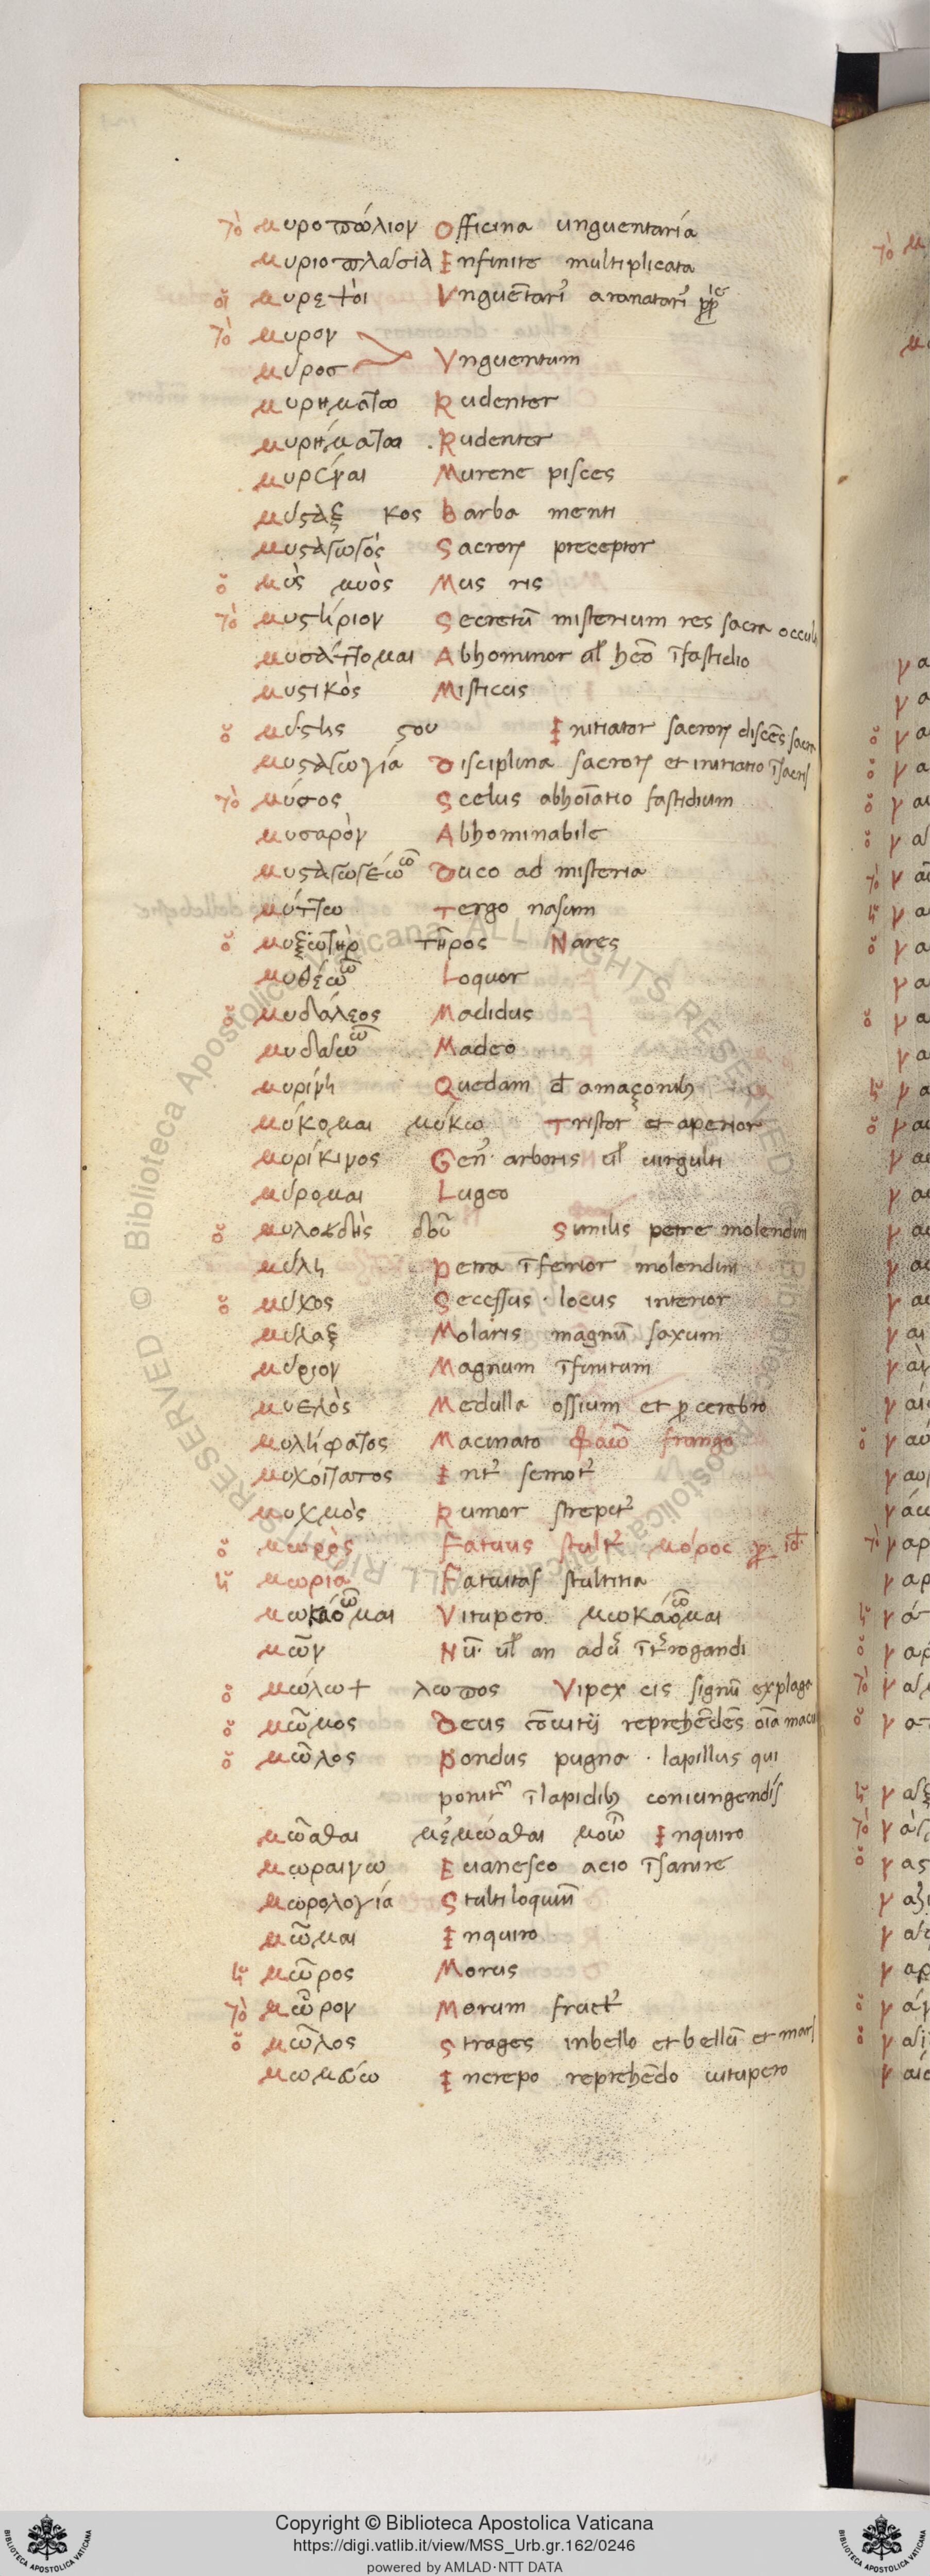 τὸ μυροπώλιον Officina unguentaria
μυριοπλασία Infinite multiplicata
οἱ μυρεψοὶ Vngue͞tarī aromatarī
τὸ μυρον
μύρος Vnguentum
μυρημάτω Rudenter
μυρημάτω Rudenter
μυρεναι Murene pisces
μύσταξ κος Barba menti
μυσταγωγός Sacroꝝ preceptor
ὁ μῦς μυὸς Mus ris
τὸ μυστήριον Secretū misterium res sacra occul
μυσάττομαι Abhominor ul̄ heō ī fastidio
μυστικὸς Misticus
ὁ μύστης στου Initiator sacroꝝ discēs sacra
μυσταγωγία Disciplina sacroꝝ et initiatio ī sacris
τὸ μύσος Scelus abhoīatio fastidium
μυσαρὸν Abhominabile
μυσταγωγέω ῶ Duco ad misteria
μύττω Tergo nasum
ὁ μυξωτὴρ τῆρος Nares
μυθέω ῶ Loquor
ὁ μυδάλεος Madidus
μυδαω ῶ Madeo
μυρίνη Quedam đ amaçonibꝫ
μύκομαι μύκω Tristor et aperior
μυρίκινος Gen̄ arboris ul̄ uirgulti
μύρομαι Lugeo
ὁ μυλοειδὴς δοῦ Similis petre molendini
μύλη Petra īferior molendini
ὁ μύχος Secessus · locus interior
μύλαξ Molaris magnū saxum
μύριον Magnum īfinitum
μυελὸς Medulla ossium et ꝓ cerebro
μυλήφατος Macinato φάω frango
μυχοίτατος Int' semot'
μυχμὸς Rumor strepit'
ὁ μωρὸς Fatuus stult' μόρος ꝓ id
ἡ μωρία Fatuitas stultitia
μωκάομαι ῶ Vitupero μωκάομαι ῶ
μῶν Nū ul̄ an adū īt̄rogandi
ὁ μώλωψ λωπος Vipex cis signū ex plaga
ὁ μῶμος Deus cōuitij reprehēdēs oīa macu
ὁ μῶλος Pondus pugna · lapillus qui
ponit' ī lapidibꝫ coniungendis
μῶσθαι μεμῶσθαι μοῶ Inquiro
μωραινω Euanesco acio īsanire
μωρολογία Stultiloquiū
μῶμαι Inquiro
ἡ μῶρος Morus
τὸ μῶρον Morum fruct'
ὁ μῶλος Strages in bello et bellū et mars
μωμεύω Increpo reprehēdo uitupero
Copyright © Biblioteca Apostolica Vaticana
https://digi.vatlib.it/view/MSS_Urb.gr.162/0246
powered by AMLAD·NTT DATA